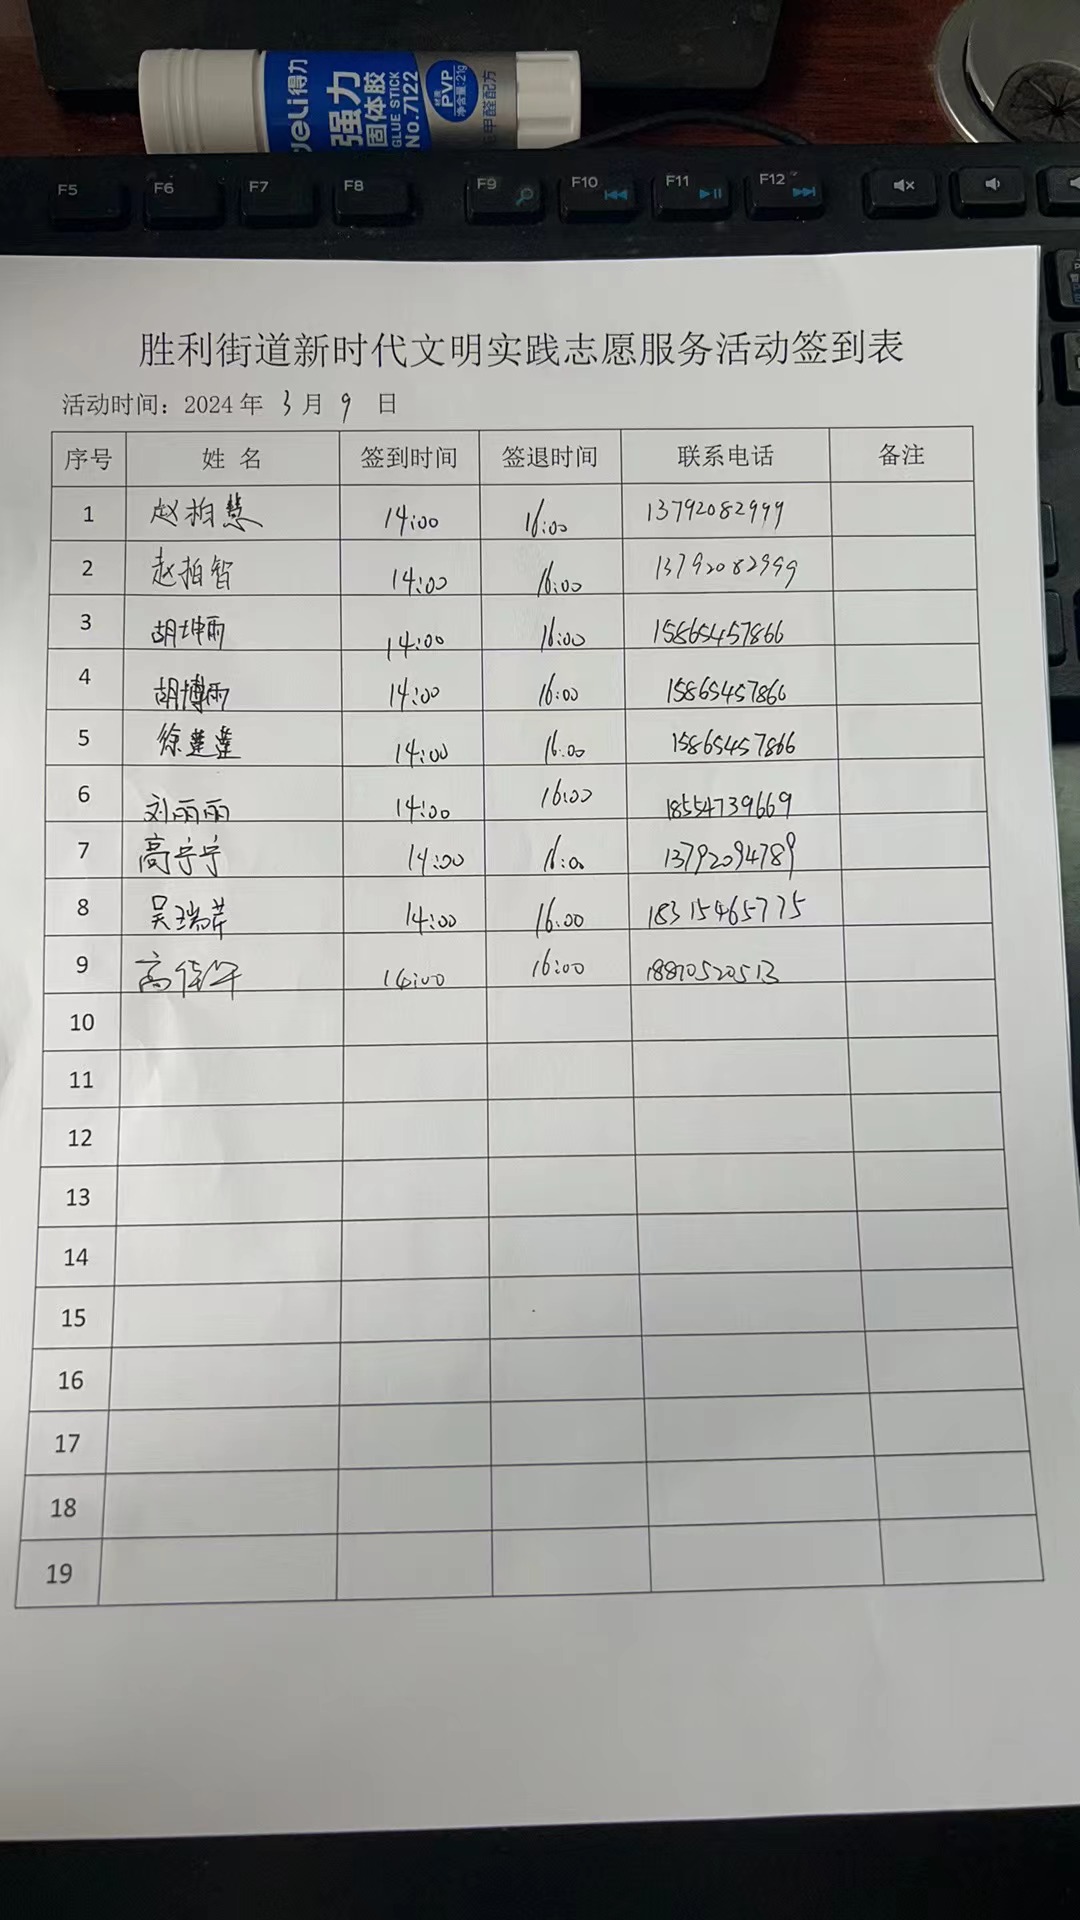 deli 得力
强力
固体胶
GLUE STICK
No.7122
材质
PVP
净含量:21g
甲醛配方
F5 F6 F7 F8 F9 F10 F11 F12
胜利街道新时代文明实践志愿服务活动签到表
活动时间：2024 年 3 月 9 日
序号 姓 名 签到时间 签退时间 联系电话 备注
1 赵柏慧 14:00 16:00 13792082999
2 赵柏智 14:00 16:00 13792082999
3 胡坤雨 14:00 16:00 15865457866
4 胡博雨 14:00 16:00 15865457866
5 徐 14:00 16:00 15865457866
6 刘丽丽 14:00 16:00 18554739669
7 高宁宁 14:00 16:00 13792094789
8 吴瑞芹 14:00 16:00 18315465775
9 高 14:00 16:00 18810520513
10
11
12
13
14
15
16
17
18
19